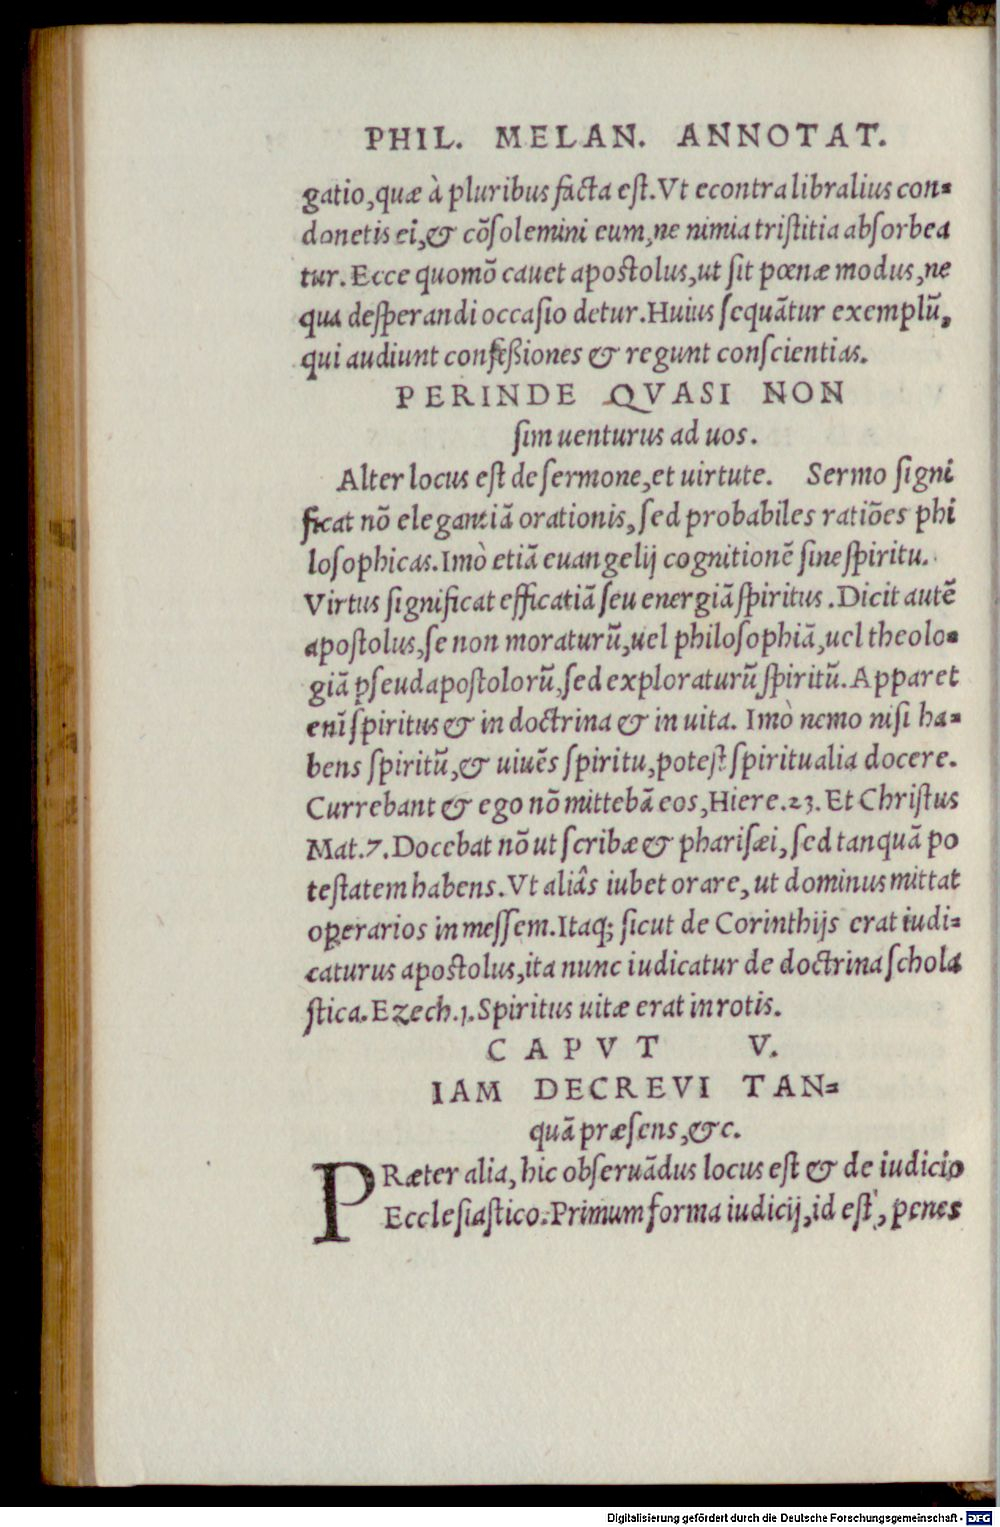 PHIL. MELAN. ANNOTAT.
gatio, quæ à pluribus facta eſt. Vt econtra libralius con⸗
donetis ei, & cõſolemini eum, ne nimia triſtitia abſorbea
tur. Ecce quomõ cauet apostolus, ut ſit pœnæ modus, ne
qua deſperandi occaſio detur. Huius ſequãtur exemplũ,
qui audiunt confeßiones & regunt conſcientias.
PERINDE QVASI NON
ſim uenturus ad uos.
Alter locus eſt de ſermone, et uirtute. Sermo ſigni
ficat nõ elegantiã orationis, ſed probabiles ratiões phi
loſophicas. Imò etiã euangelij cognitionẽ ſine ſpiritu.
Virtus ſignificat efficatiã ſeu energiã ſpiritus. Dicit autẽ
apoſtolus, ſe non moraturũ, uel philoſophiã, uel theolo⸗
giã pſeudapoſtolorũ, ſed exploraturũ ſpiritũ. Apparet
enĩ ſpiritus & in doctrina & in uita. Imò nemo niſi ha⸗
bens ſpiritũ, & uiuẽs ſpiritu, poteſt ſpiritualia docere.
Currebant & ego nõ mittebã eos, Hiere. 23. Et Chriſtus
Mat. 7. Docebat nõ ut ſcribæ & phariſæi, ſed tanquã po
teſtatem habens. Vt aliâs iubet orare, ut dominus mittat
operarios in meſſem. Itaq; ſicut de Corinthijs erat iudi⸗
caturus apostolus, ita nunc iudicatur de doctrina ſchola
ſtica. Ezech. 1. Spiritus uitæ erat in rotis.
CAPVT V.
IAM DECREVI TAN⸗
quã præſens, &c.
PRæter alia, hic obſeruãdus locus eſt & de iudicio
Eccleſiaſtico. Primum forma iudicij, id eſt, penes
Digitalisierung gefördert durch die Deutsche Forschungsgemeinschaft - DFG